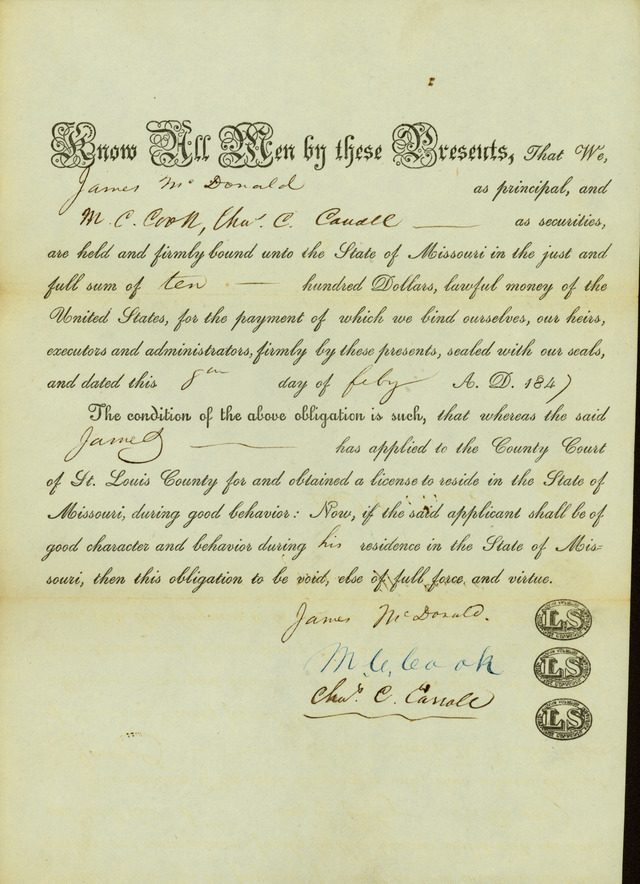 Know All Men by these Presents, That We,
James McDonald as principal, and
M. C. Cook, Chas. C. Carroll as securities,
are held and firmly bound unto the State of Missouri in the just and
full sum of ten hundred Dollars, lawful money of the
United States, for the payment of which we bind ourselves, our heirs,
executors and administrators, firmly by these presents, sealed with our seals,
and dated this 8th day of feby A. D. 1847
The condition of the above obligation is such, that whereas the said
James has applied to the County Court
of St. Louis County for and obtained a license to reside in the State of
Missouri, during good behavior: Now, if the said applicant shall be of
good character and behavior during his residence in the State of Mis=
souri, then this obligation to be void, else of full force and virtue.
James McDonald.
LS
M. C. Cook
LS
Chas. C. Carroll
LS